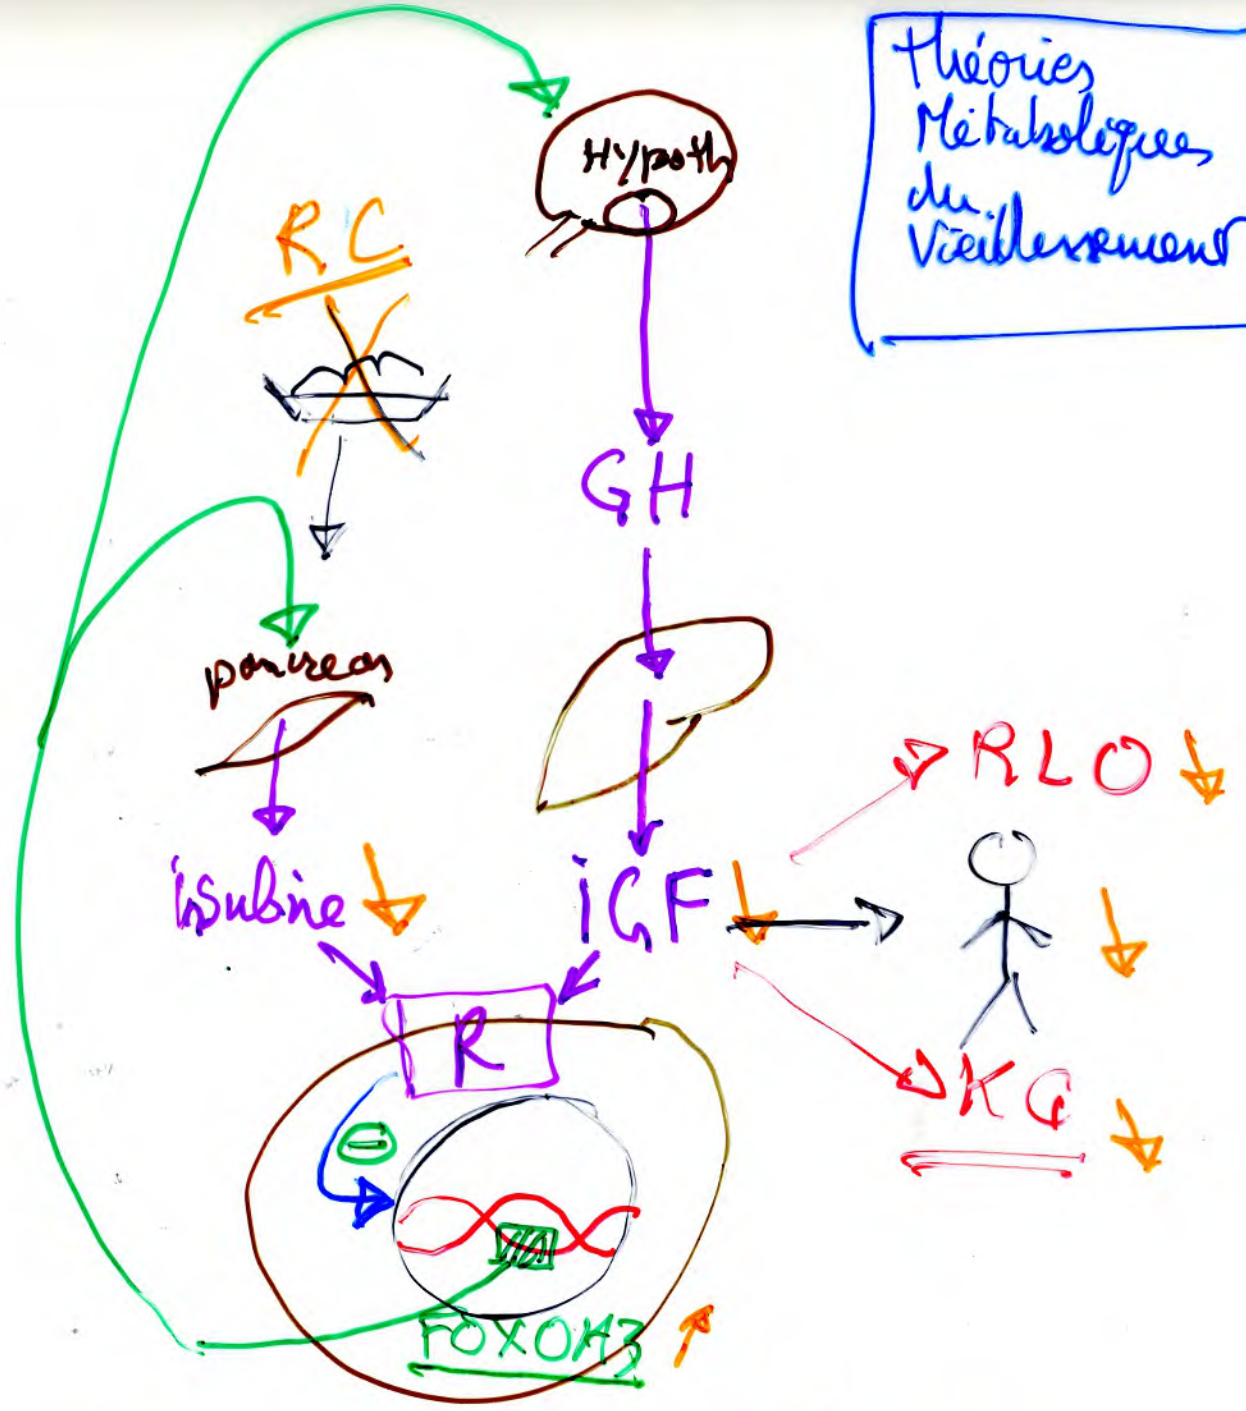 Théories
Métaboliques
du
Vieillissement
Hypoth
RC
GH
pancreas
insuline
iGF
RLO
R
KC
FOXOA3